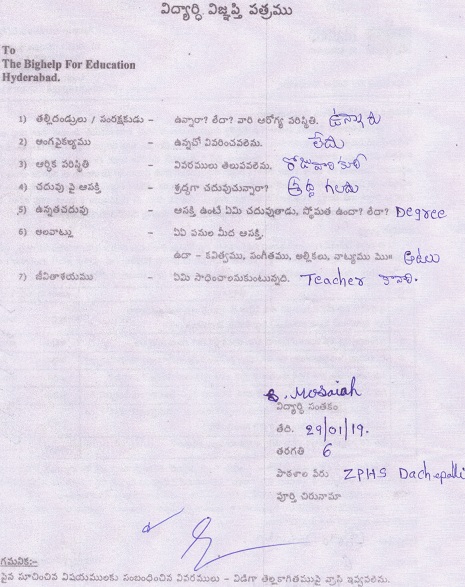 విద్యార్ధి విజ్ఞప్తి పత్రము
To
The Bighelp For Education
Hyderabad.
1) తల్లిదండ్రులు / సంరక్షకుడు – ఉన్నారా? లేదా? వారి ఆరోగ్య పరిస్థితి. ఉన్నారు
2) అంగవైకల్యము – ఉన్నచో వివరించవలెను. లేదు
3) ఆర్ధిక పరిస్థితి – వివరములు తెలుపవలెను. రోజువారి కూలి
4) చదువు పై ఆసక్తి – శ్రద్ధగా చదువుచున్నారా? శ్రద్ధ గలదు
5) ఉన్నతచదువు – ఆసక్తి ఉంటే ఏమి చదువుతాడు, స్థోమత ఉందా? లేదా? Degree
6) అలవాట్లు – ఏఏ పనుల మీద ఆసక్తి.
ఉదా – కవిత్వము, సంగీతము, అల్లికలు, నాట్యము మొ॥ ఆటలు
7) జీవితాశయము – ఏమి సాధించాలనుకుంటున్నది. Teacher కావాలి.
S. Mosaiah
విద్యార్ధి సంతకం
తేది. 29/01/19.
తరగతి 6
పాఠశాల పేరు ZPHS Dachepalli
పూర్తి చిరునామా
గమనిక:-
పైన సూచించిన విషయములకు సంబంధించిన వివరములు – విడిగా తెల్లకాగితముపై వ్రాసి ఇవ్వవలెను.